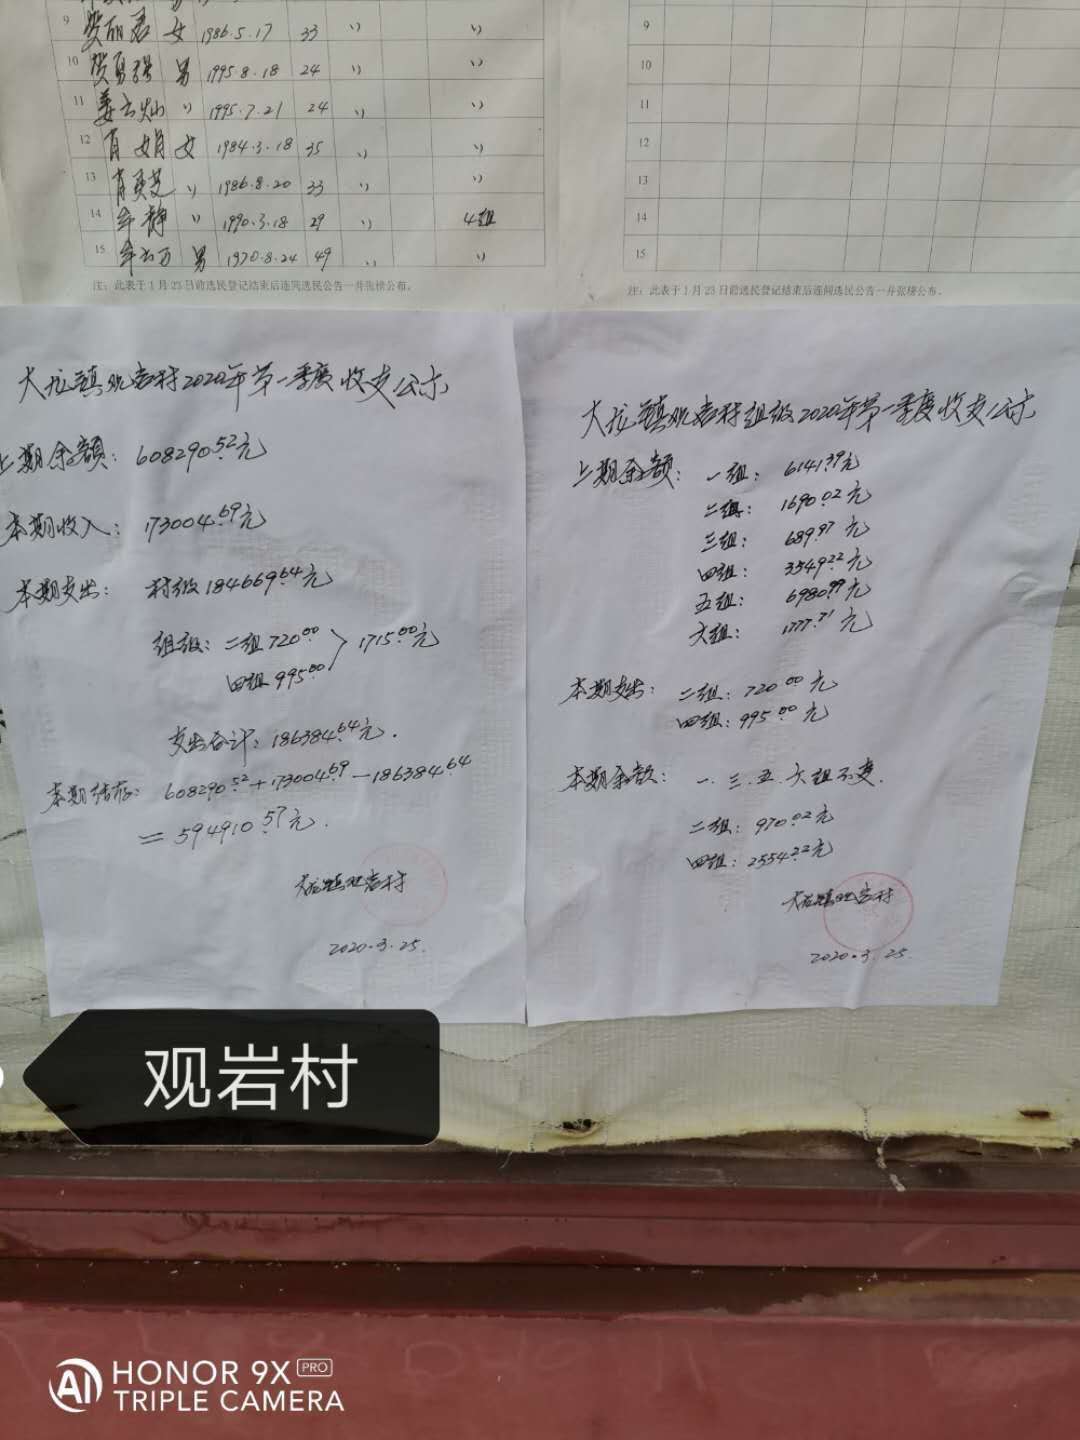 9 女 1986.5.17 33 〃 〃
10 贺勇强 男 1995.8.18 24 〃 〃
11 姜云灿 〃 1995.7.21 24 〃 〃
12 肖娟 女 1984.3.18 35 〃 〃
13 〃 1986.8.20 33 〃 〃
14 静 〃 1990.3.18 29 〃 4组
15 男 1970.8.24 49 〃 〃
注：此表于1月23日前选民登记结束后连同选民公告一并张榜公布。
9
10
11
12
13
14
15
注：此表于1月23日前选民登记结束后连同选民公告一并张榜公布。
大龙镇观岩村2020年第一季度收支公示
上期余额：608290.52元
本期收入：173004.69元
本期支出：村级184669.64元
组级：二组720.00 } 1715.00元
四组995.00
支出合计：186384.64元.
本期结存：608290.52+173004.69-186384.64
=594910.57元.
大龙镇观岩村
2020.3.25.
大龙镇观岩村组级2020年第一季度收支公示
上期余额：一组：6141.39元
二组：1690.02元
三组：689.97元
四组：3549.22元
五组：6980.99元
六组：1777.71元
本期支出：二组：720.00元
四组：995.00元
本期余额：一.三.五.六组不变.
二组：970.02元
四组：2554.22元
大龙镇观岩村
2020.3.25.
观岩村
AI HONOR 9X PRO
TRIPLE CAMERA